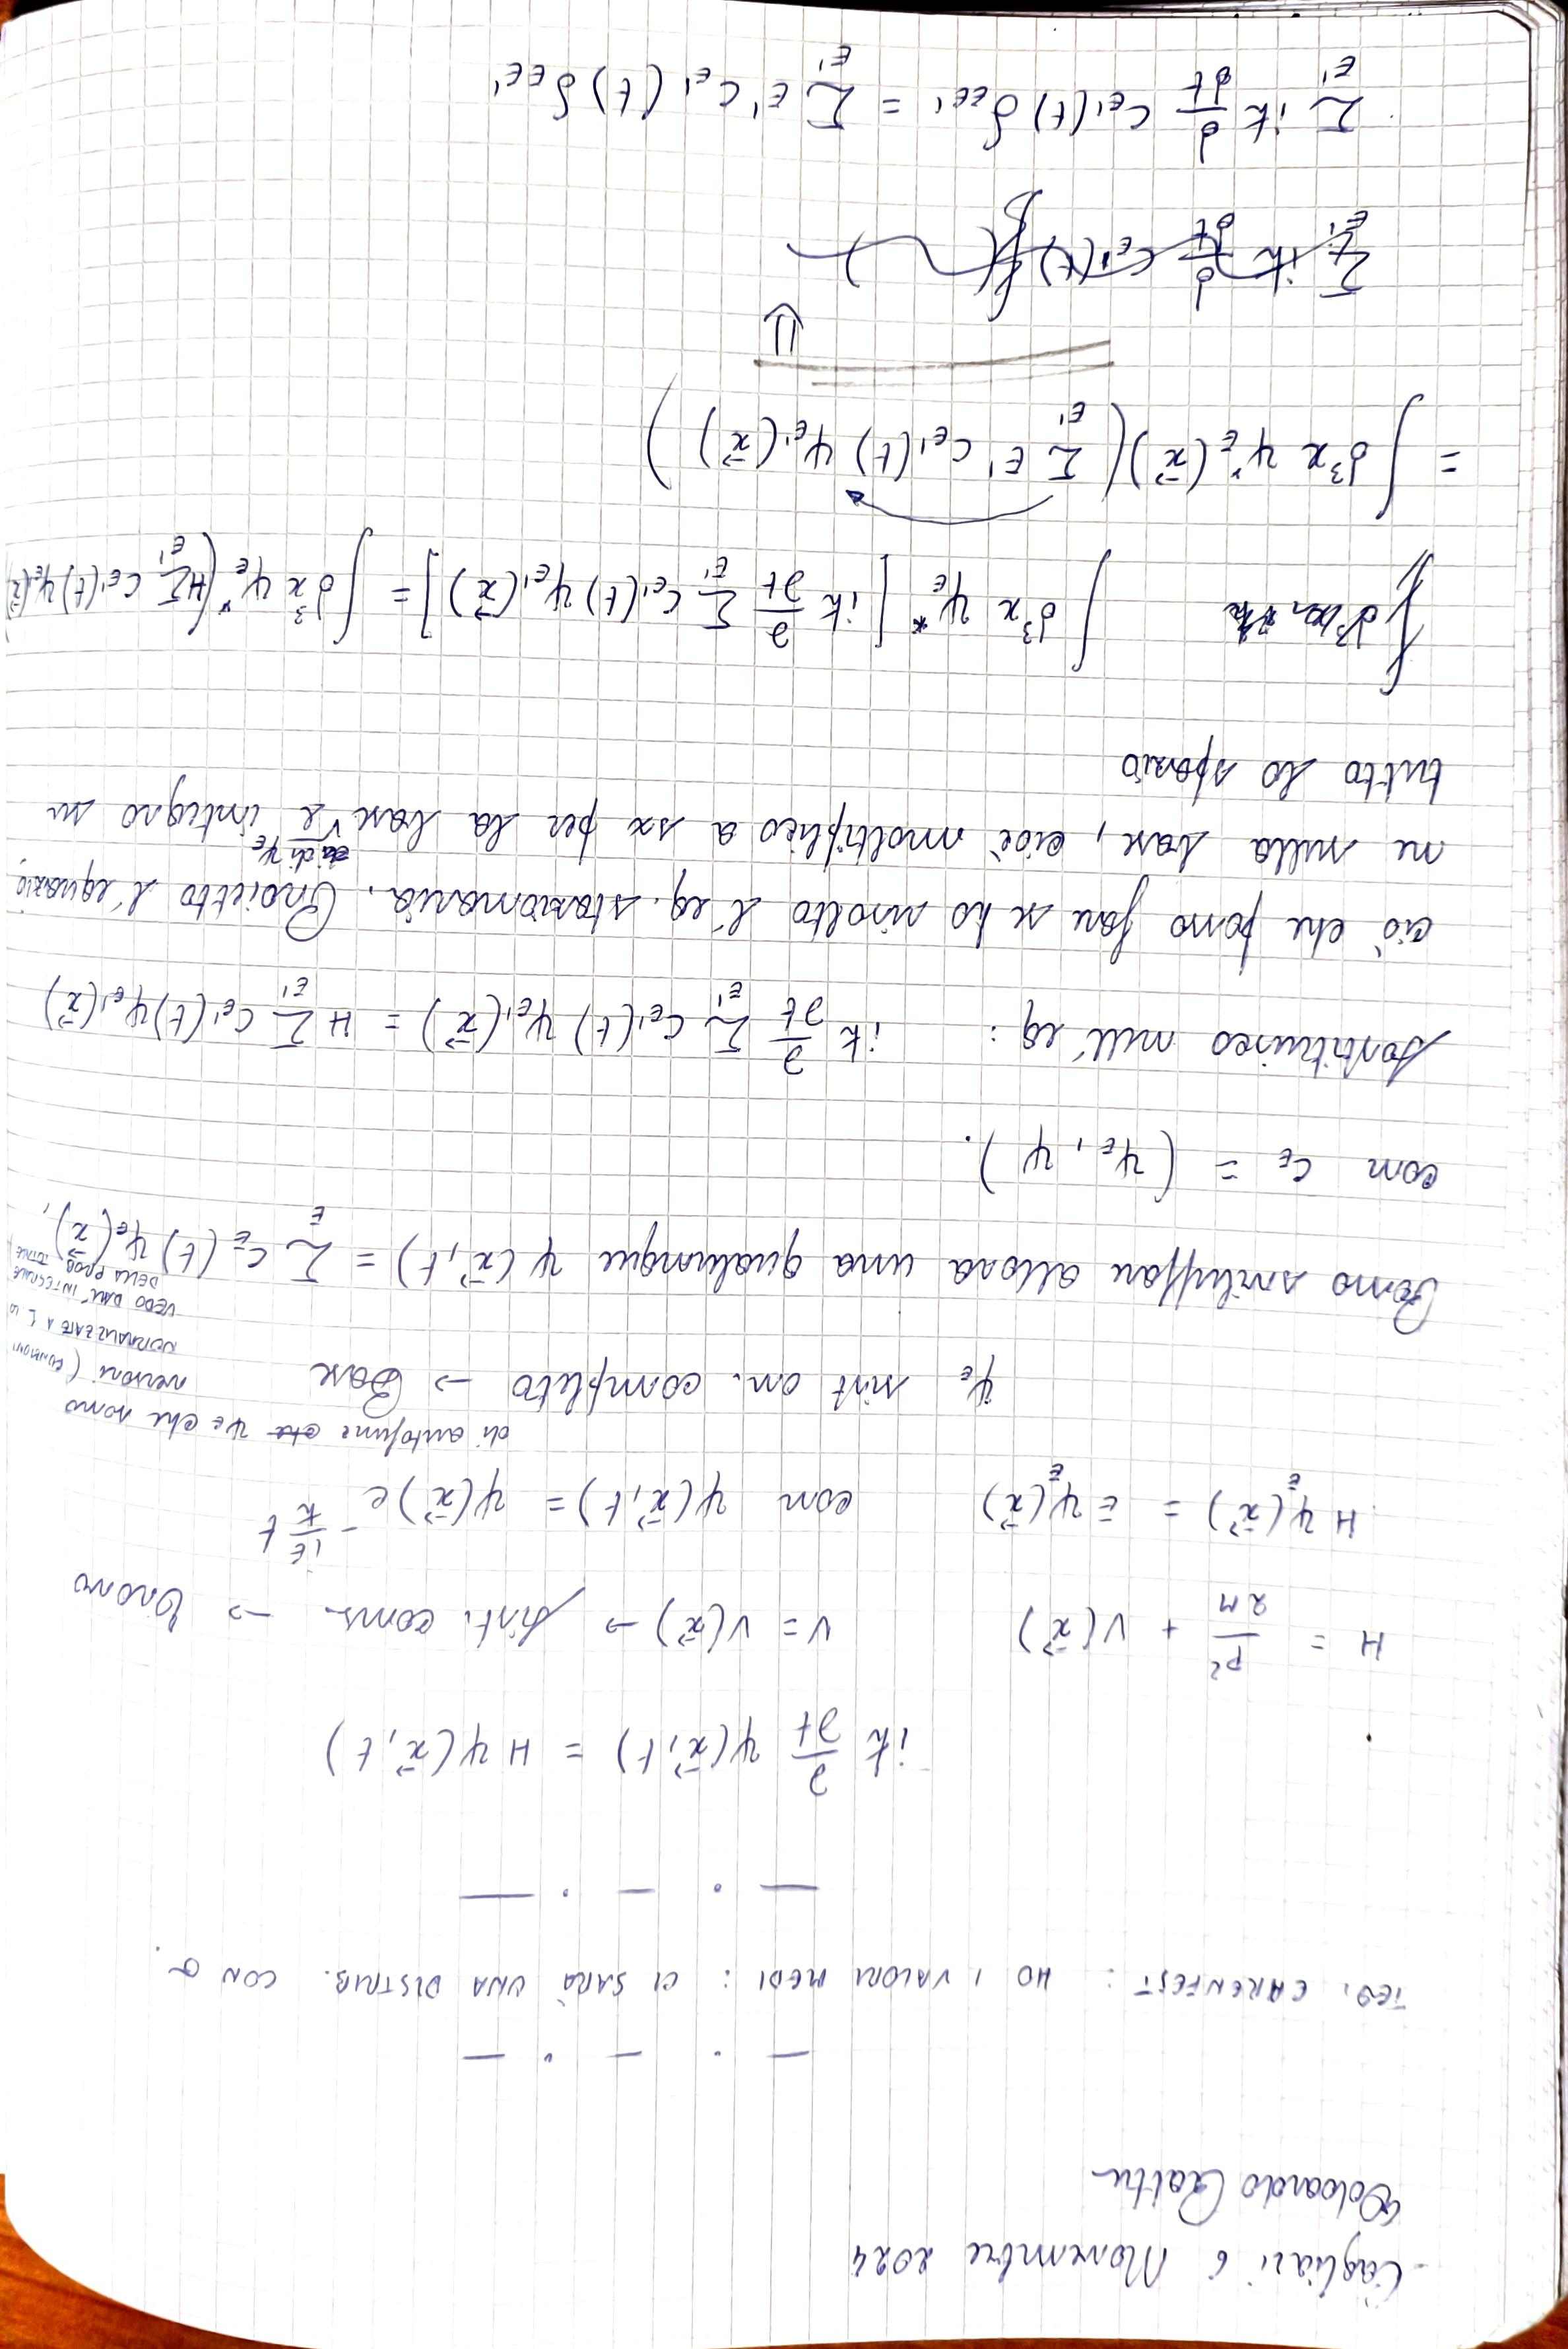 Cagliari 6 Novembre 2024
Edoardo
— . — . —
TEO. EHRENFEST : HO I VALORI MEDI : CI SARÀ UNA DISTRIB. CON σ.
— . — . —
iħ ∂/∂t ψ(x⃗,t) = H ψ(x⃗,t)
H = p²/2M + V(x⃗)   V = V(x⃗) → sist. cons. → trovo
H ψ_E(x⃗) = E ψ_E(x⃗)   con ψ(x⃗,t) = ψ(x⃗) e^{-iE/ħ t}
di autofunz ψ_E che sono
ψ_E sist on. completo → Base   versori (
NORMALIZZATE A 1, LO
VEDO DALL'INTEGRALE
DELLA PROB. TOTALE
Posso sviluppare allora una qualunque ψ(x⃗,t) = Σ_E c_E(t) ψ_E(x⃗),
con c_E = (ψ_E, ψ).
Sostituisco nell'eq : iħ ∂/∂t Σ_{E'} c_{E'}(t) ψ_{E'}(x⃗) = H Σ_{E'} c_{E'}(t) ψ_{E'}(x⃗)
ciò che posso fare se ho risolto l'eq. stazionaria. Proietto l'equazio
ne sulla base, cioè moltiplico a sx per la base di ψ_E e integro su
tutto lo spazio
∫ d³x ψ_E* [iħ ∂/∂t Σ_{E'} c_{E'}(t) ψ_{E'}(x⃗)] = ∫ d³x ψ_E* (H Σ_{E'} c_{E'}(t) ψ_{E'}(x⃗)
= ∫ d³x ψ_E*(x⃗) (Σ_{E'} E' c_{E'}(t) ψ_{E'}(x⃗))
⇓
Σ_{E'} iħ d/dt c_{E'}(t) ∫( )
Σ_{E'} iħ d/dt c_{E'}(t) δ_{EE'} = Σ_{E'} E' c_{E'}(t) δ_{EE'}